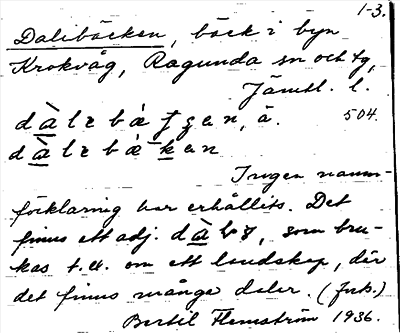 1-3.
Dalibäcken, bäck i byn
Krokvåg, Ragunda sn och tg,
Jämtl. l.
504.
Ingen namn-
förklaring har erhållits. Det
finns ett adj. som bru-
kas t.ex. om ett landskap, där
det finns många dalar.
Bertil Flemström 1936.